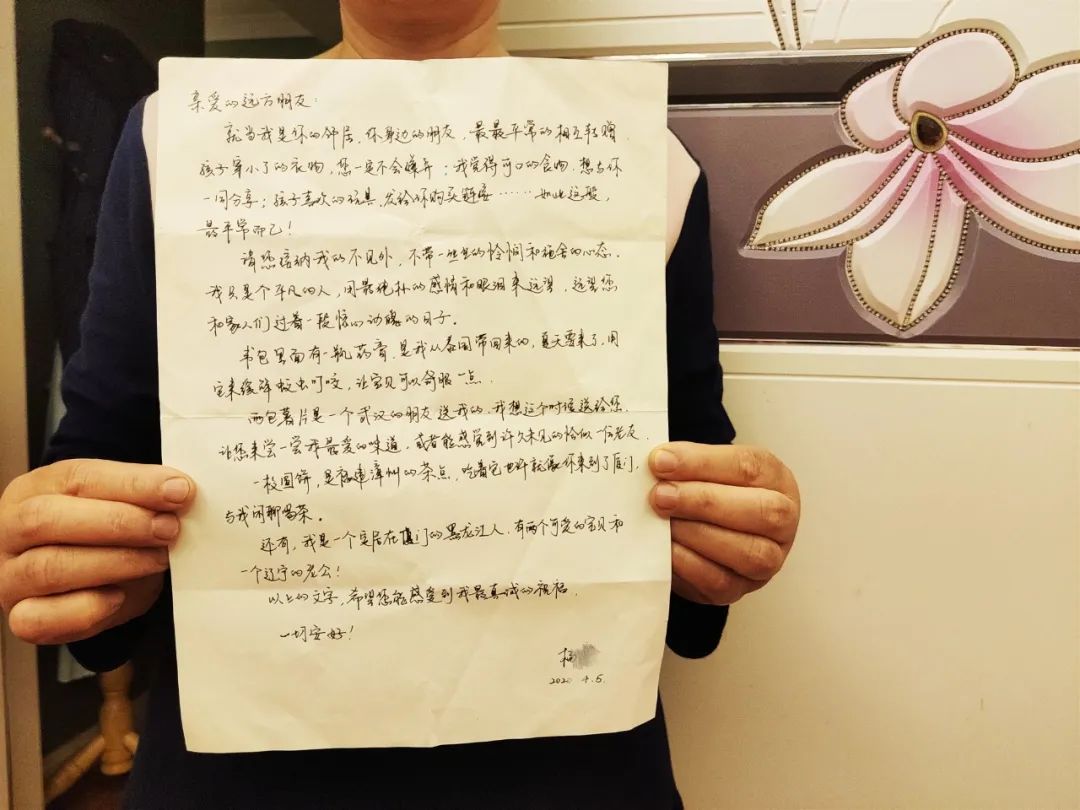 亲爱的远方朋友：
就当我是你的邻居，你身边的朋友，最最平常的相互转赠
孩子穿小了的衣物，您一定不会嫌弃；我觉得可口的食物，想与你
一同分享；孩子喜欢的玩具，发给你购买链接……如此这般，
最平常而已！
请您接纳我的不见外，不带一丝的怜悯和施舍的心态。
我只是个平凡的人，用最纯朴的感情和眼泪来远望，远望您
和家人们过着一段惊心动魄的日子。
书包里面有一瓶药膏，是我从泰国带回来的，夏天要来了，用
它来缓解蚊虫叮咬，让宝贝可以舒服一点。
两包薯片是一个武汉的朋友送我的，我想这个时候送给您，
让您来尝一尝我最爱的味道，或者能感觉到许久未见的恰似一位老友．
一枚圆饼，是福建漳州的茶点，吃着它也许就像你来到了厦门，
与我闲聊喝茶。
还有，我是一个定居在厦门的黑龙江人，有两个可爱的宝贝和
一个辽宁的老公！
以上的文字，希望您能感受到我最真诚的祝福．
一切安好！
2020 4.5.